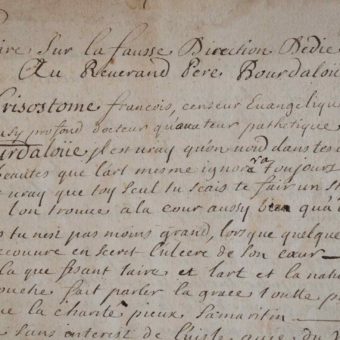 ire Sur la fausse Direction Dédié
Au Réverand Pere Bourdaloüe
risostome francois, censeur Euangelique
sy profond docteur qu'orateur pathetique
urdaloüe, jl est uray qu'on uoid dans tes
eautes que l'art mesme ignora toujours
t uray que toy seul tu scais te fair un
lon trouue a la cour aussy bien qu'a
s tu nest pas moins grand, lorsque quelque
ecouure en secret l'ulcere de son cœur
la que fisant taire et l'art et la natu
ouche fait parler la grace toutte p
me la charité pieux samaritin
sans interest de